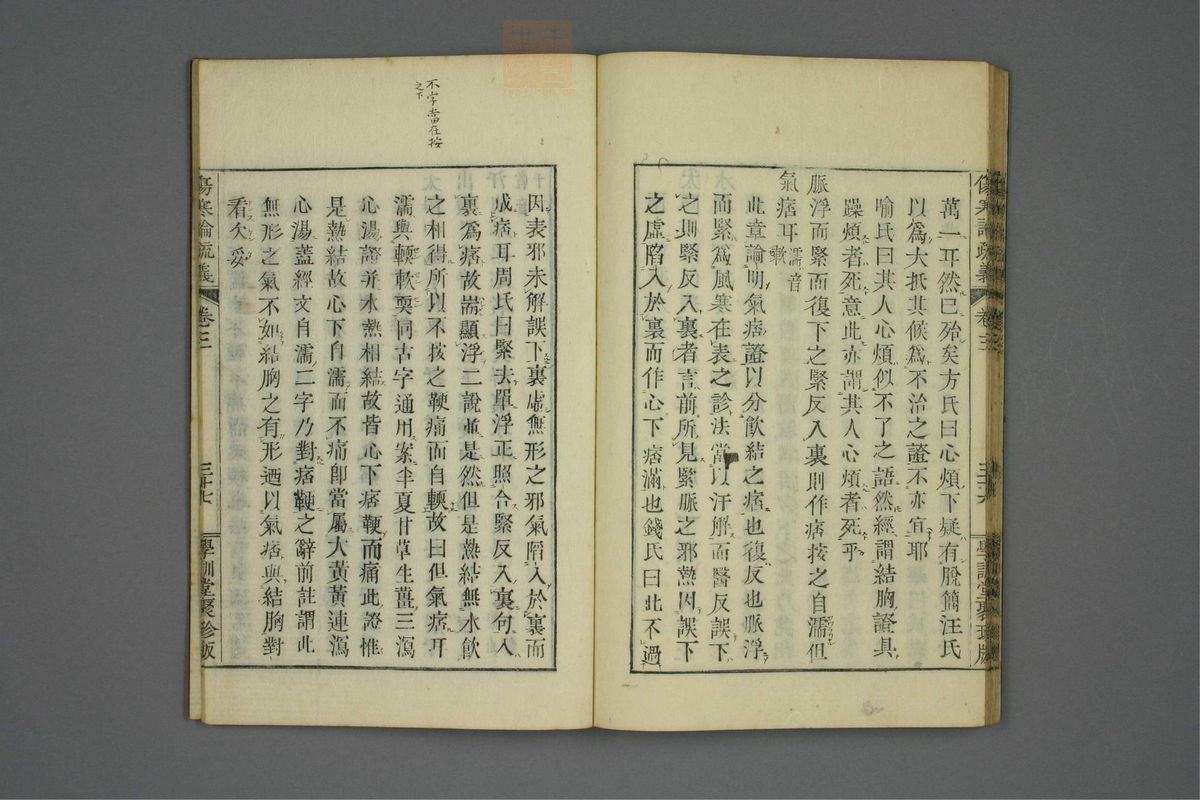 萬一耳然已殆矣方氏曰心煩下疑有脫簡汪氏
以爲大抵其候爲不治之證不亦宜耶
喻氏曰其人心煩似不了之語然經謂結胸證具
躁煩者死意此亦謂其人心煩者死乎
脈浮而緊而復下之緊反入裏則作痞按之自濡但
氣痞耳濡音
輭
此章論明氣痞證以分飮結之痞也復反也脈浮
而緊爲風寒在表之診法當以汗解而醫反誤下
之則緊反入裏者言前所見緊脈之邪熱因誤下
之虛陷入於裏而作心下痞滿也錢氏曰此不過
因表邪未解誤下裏虛無形之邪氣陷入於裏而
成痞耳周氏曰緊去單浮正照合緊反入裏句入
裏爲痞故耑顯浮二說並是然但是熱結無水飮
之相得所以不按之鞕痛而自輭故曰但氣痞耳
濡與輭軟耎同古字通用案半夏甘草生薑三瀉
心湯證并水熱相結故皆心下痞鞕而痛此證惟
是熱結故心下自濡而不痛卽當屬大黃黃連瀉
心湯蓋經文自濡二字乃對痞鞕之辭前註謂此
無形之氣不如結胸之有形迺以氣痞與結胸對
看欠妥
傷寒論疏義
卷三
三十七
學訓堂聚珍版
不字當在按
之下